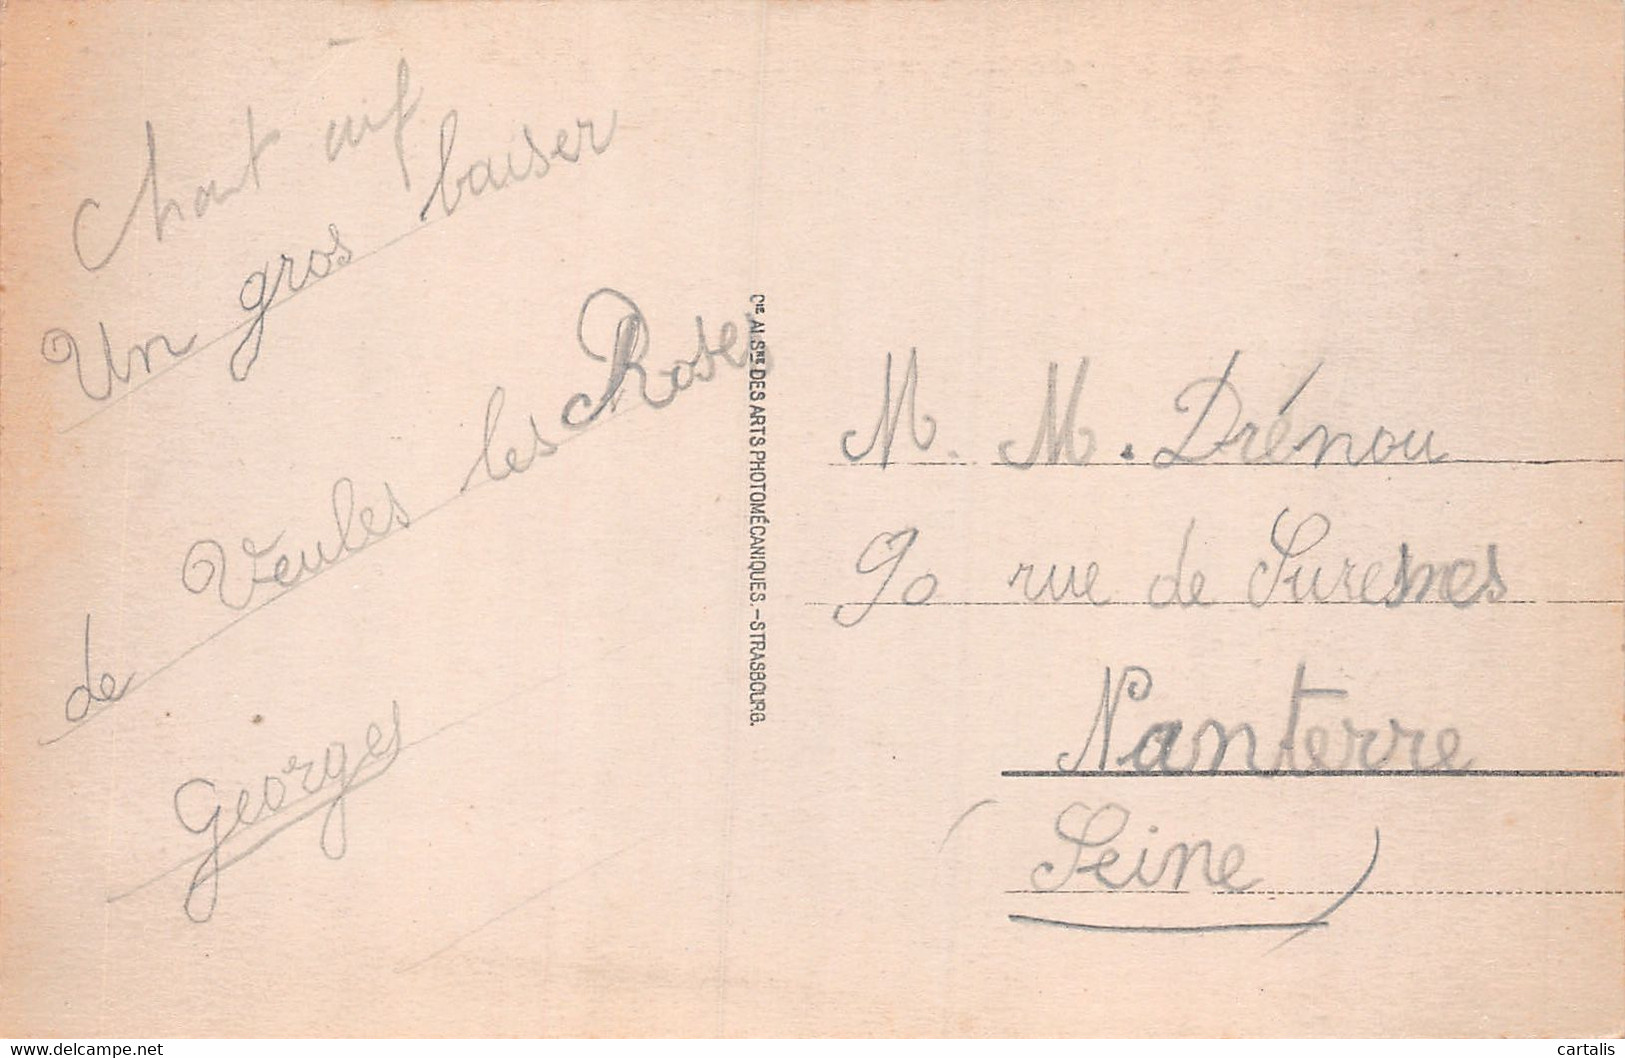 Un gros baiser
de Veules les Roses
Georges
Cie ALSne DES ARTS PHOTOMÉCANIQUES.-STRASBOURG.
M. M. Drénou
90 rue de Suresnes
Nanterre
(Seine)
www.delcampe.net
cartalis